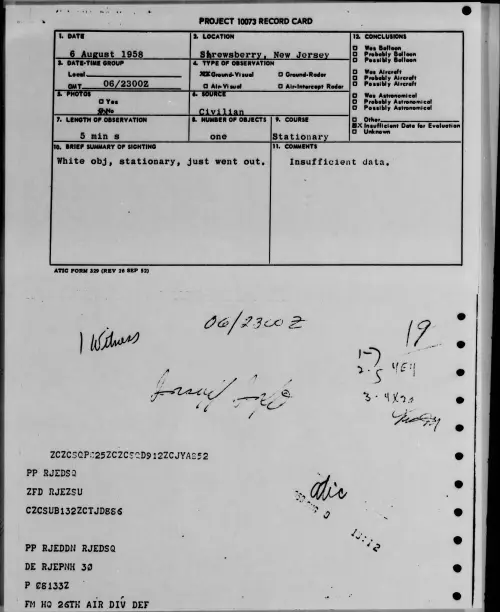 PROJECT 10073 RECORD CARD
1. DATE
6 August 1958
2. LOCATION
Shrewsberry, New Jersey
12. CONCLUSIONS
□ Was Balloon
□ Probably Balloon
□ Possibly Balloon
□ Was Aircraft
□ Probably Aircraft
□ Possibly Aircraft
□ Was Astronomical
□ Probably Astronomical
□ Possibly Astronomical
□ Other
X Insufficient Data for Evaluation
□ Unknown
3. DATE-TIME GROUP
Local
GMT 06/2300Z
4. TYPE OF OBSERVATION
XX Ground-Visual □ Ground-Radar
□ Air-Visual □ Air-Intercept Radar
5. PHOTOS
□ Yes
No
6. SOURCE
Civilian
7. LENGTH OF OBSERVATION
5 min s
8. NUMBER OF OBJECTS
one
9. COURSE
Stationary
10. BRIEF SUMMARY OF SIGHTING
White obj, stationary, just went out.
11. COMMENTS
Insufficient data.
ATIC FORM 329 (REV 26 SEP 52)
06/2300Z
1 Witness
19
1-7
2. 5 4E4
3. 4X
atic
ZFD RJEZSU
CZCSUB132ZCTJD886
PP RJEDSQ
PP RJEDDN RJEDSQ
DE RJEPNH 30
P 08133Z
FM HQ 26TH AIR DIV DEF